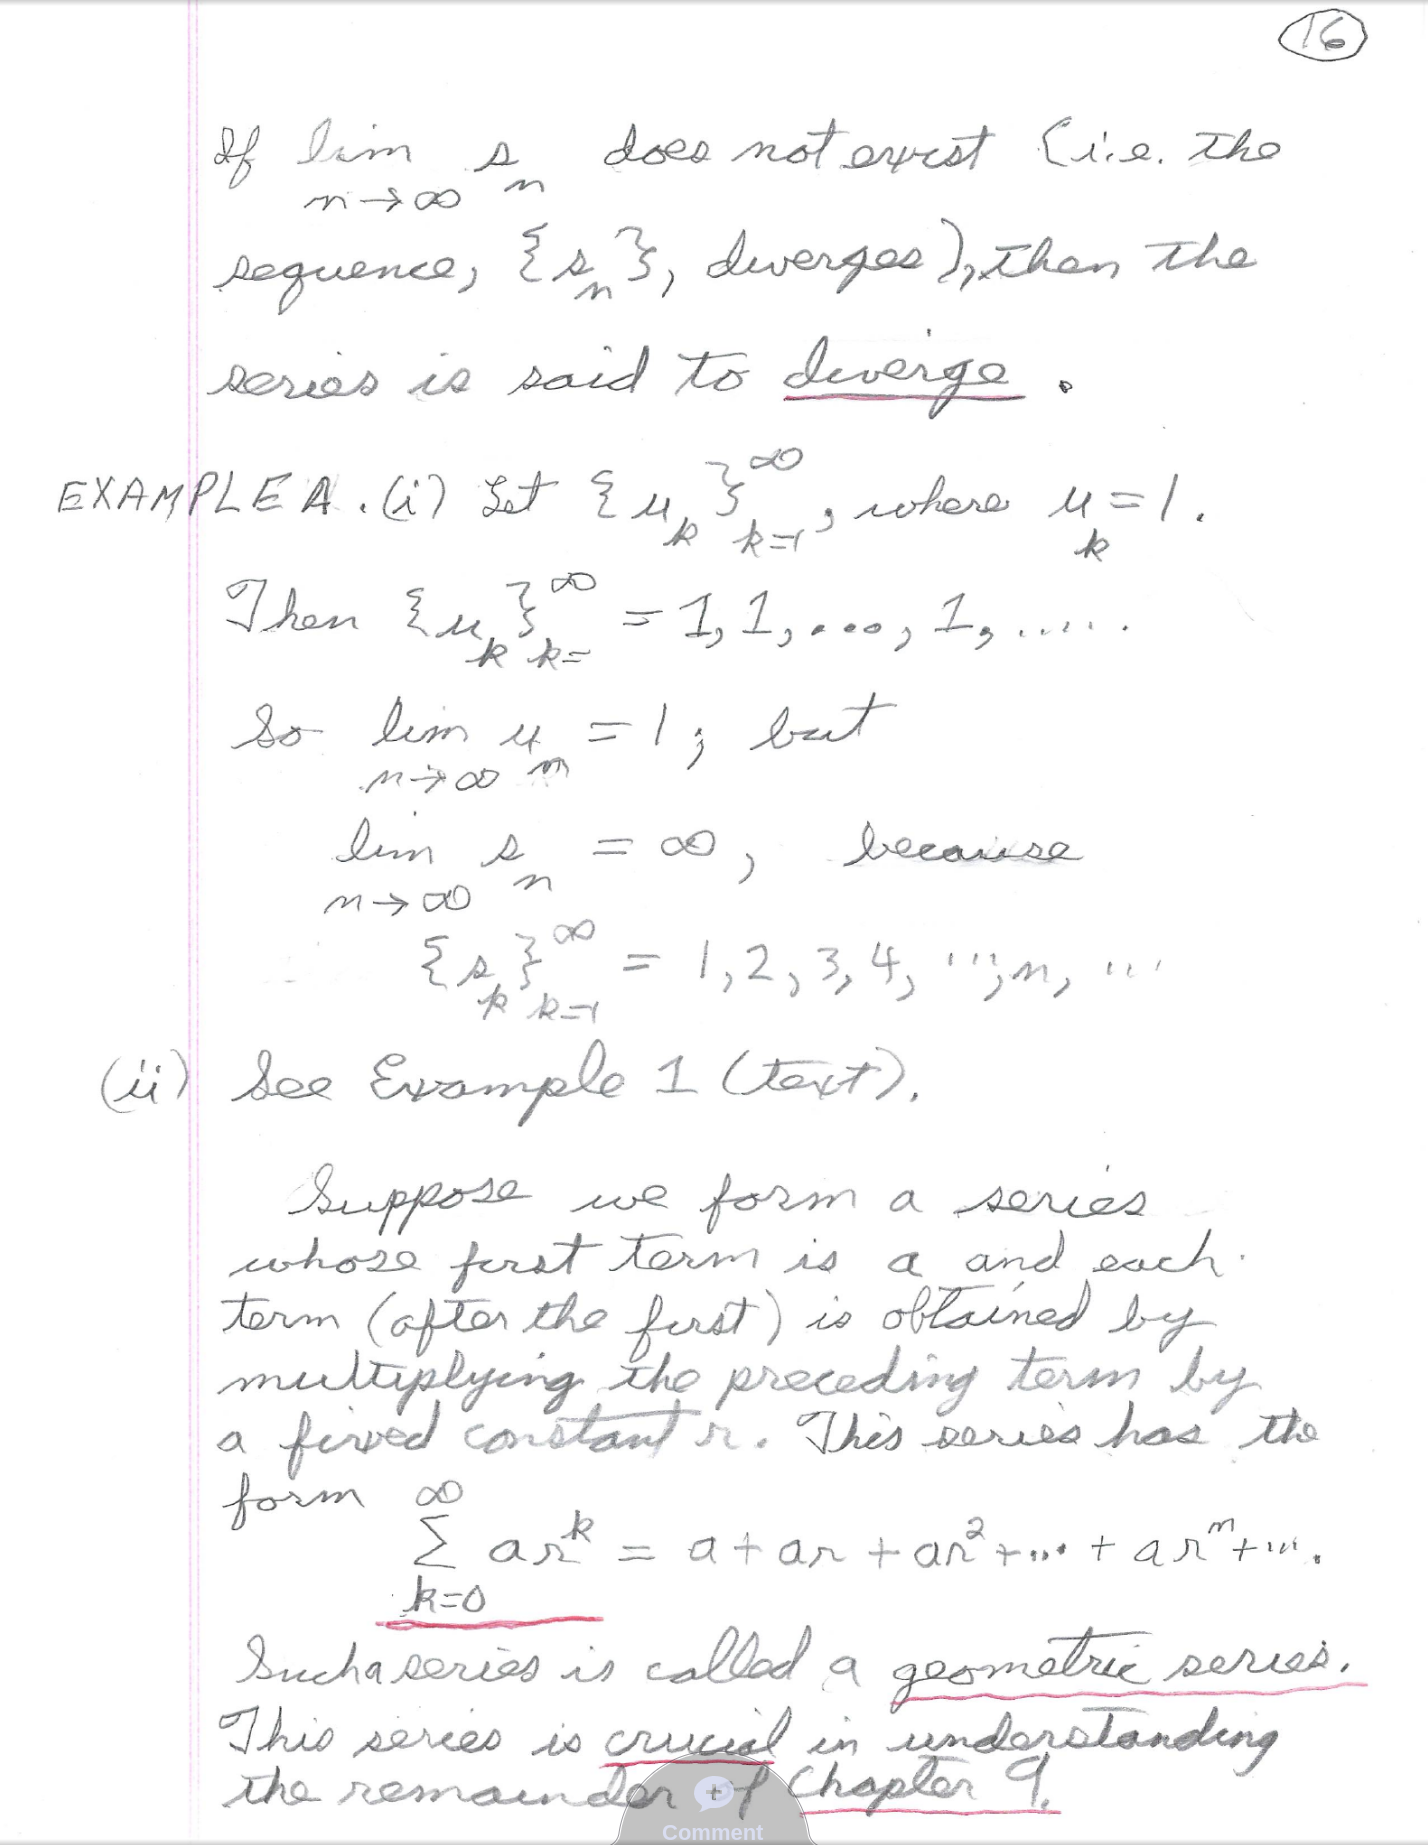 16
If lim s_n does not exist (i.e. the
n→∞
sequence, {s_n}, diverges), then the
series is said to diverge.
EXAMPLE A. (i) Let {u_k}_{k=1}^∞, where u_k = 1.
Then {u_k}_{k=}^∞ = 1, 1, ..., 1, .....
So lim u_n = 1; but
n→∞
lim s_n = ∞, because
n→∞
{s_k}_{k=1}^∞ = 1, 2, 3, 4, ..., n, ...
(ii) See Example 1 (text).
Suppose we form a series
whose first term is a and each
term (after the first) is obtained by
multiplying the preceding term by
a fixed constant r. This series has the
form
∑_{k=0}^∞ ar^k = a + ar + ar^2 + ... + ar^n + ....
Such a series is called a geometric series.
This series is crucial in understanding
the remainder of Chapter 9.
Comment